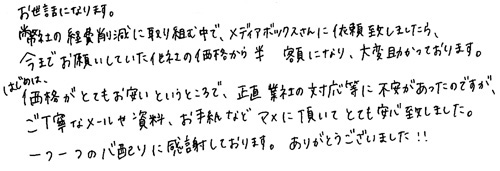 お世話になります。
弊社の経費削減に取り組む中で、メディアボックスさんに依頼致しましたら、
今までお願いしていた他社の価格から半額になり、大変助かっております。
はじめは、
価格がとてもお安いというところで、正直業社の対応等に不安があったのですが、
ご丁寧なメールや資料、お手紙などマメに頂いてとても安心致しました。
一つ一つの心配りに感謝しております。ありがとうございました!!